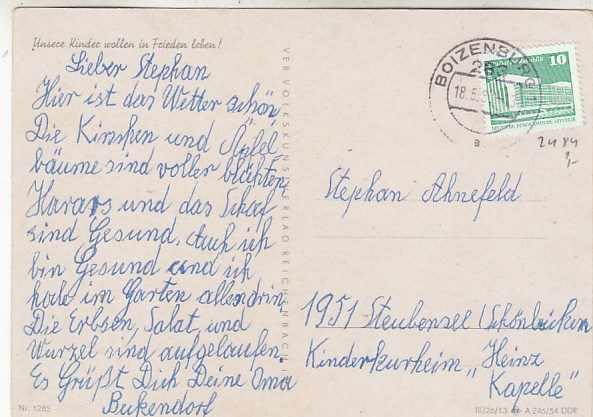 Unsere Kinder wollen in Frieden leben!
Lieber Stephan
Hier ist das Wetter schön,
Die Kirschen und Äpfel
bäume sind voller blühten
und das Schaf
sind Gesund. Auch ich
bin Gesund und ich
habe im Garten alles drin
Die Erbsen, Salat, und
Wurzel sind aufgelaufen.
Es Grüßt Dich Deine Oma
Beckendorf
Nr. 1285
VEB VOLKSKUNSTVERLAG REICHENBACH i.
BOIZENBURG
18.5.
a
10
DEUTSCHE DEMOKRATISCHE REPUBLIK
2484
1,-
Stephan Ahnefeld
1951 Steubensee / Schönbirken
Kinderkurheim „Heinz
Kapelle"
III/26/13 A 246/54 DDR